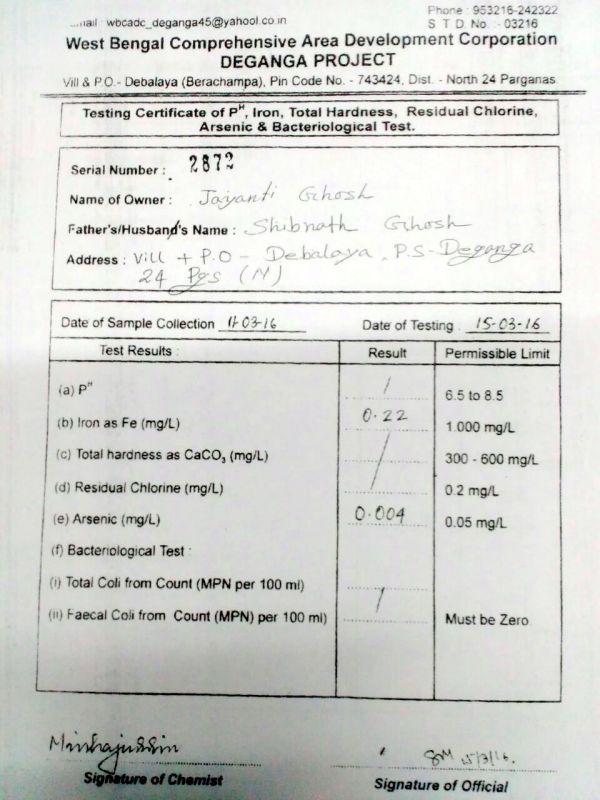 mail : wbcadc_deganga45@yahool.co.in
Phone : 953216-242322
S T D. No. - 03216
West Bengal Comprehensive Area Development Corporation
DEGANGA PROJECT
Vill & P.O.- Debalaya (Berachampa), Pin Code No. - 743424, Dist. - North 24 Parganas
Testing Certificate of Pᴴ, Iron, Total Hardness, Residual Chlorine,
Arsenic & Bacteriological Test.
Serial Number : 2872
Name of Owner : Jayanti Ghosh
Father's/Husband's Name : Shibnath Ghosh
Address : Vill + P.O - Debalaya, P.S- Deganga
24 Pgs (N)
Date of Sample Collection 11-03-16 Date of Testing : 15-03-16
Test Results : Result Permissible Limit
(a) Pᴴ / 6.5 to 8.5
(b) Iron as Fe (mg/L) 0.22 1.000 mg/L
(c) Total hardness as CaCO₃ (mg/L) / 300 - 600 mg/L
(d) Residual Chlorine (mg/L) 0.2 mg/L
(e) Arsenic (mg/L) 0.004 0.05 mg/L
(f) Bacteriological Test :
(i) Total Coli from Count (MPN per 100 ml) /
(ii) Faecal Coli from Count (MPN) per 100 ml) Must be Zero
15/3/16.
Signature of Chemist Signature of Official